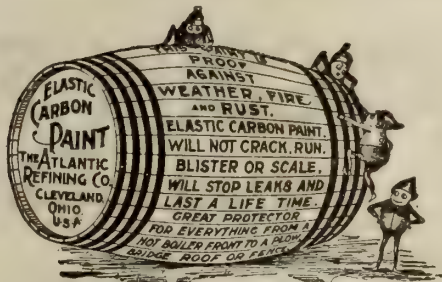 ELASTIC
CARBON
PAINT
THE ATLANTIC
REFINING CO.
CLEVELAND,
OHIO.
USA
THIS PAINT IS
PROOF
AGAINST
WEATHER, FIRE
AND RUST.
ELASTIC CARBON PAINT.
WILL NOT CRACK, RUN,
BLISTER OR SCALE,
WILL STOP LEAKS AND
LAST A LIFE TIME.
GREAT PROTECTOR
FOR EVERYTHING FROM A
HOT BOILER FRONT TO A PLOW,
BRIDGE ROOF OR FENCE.